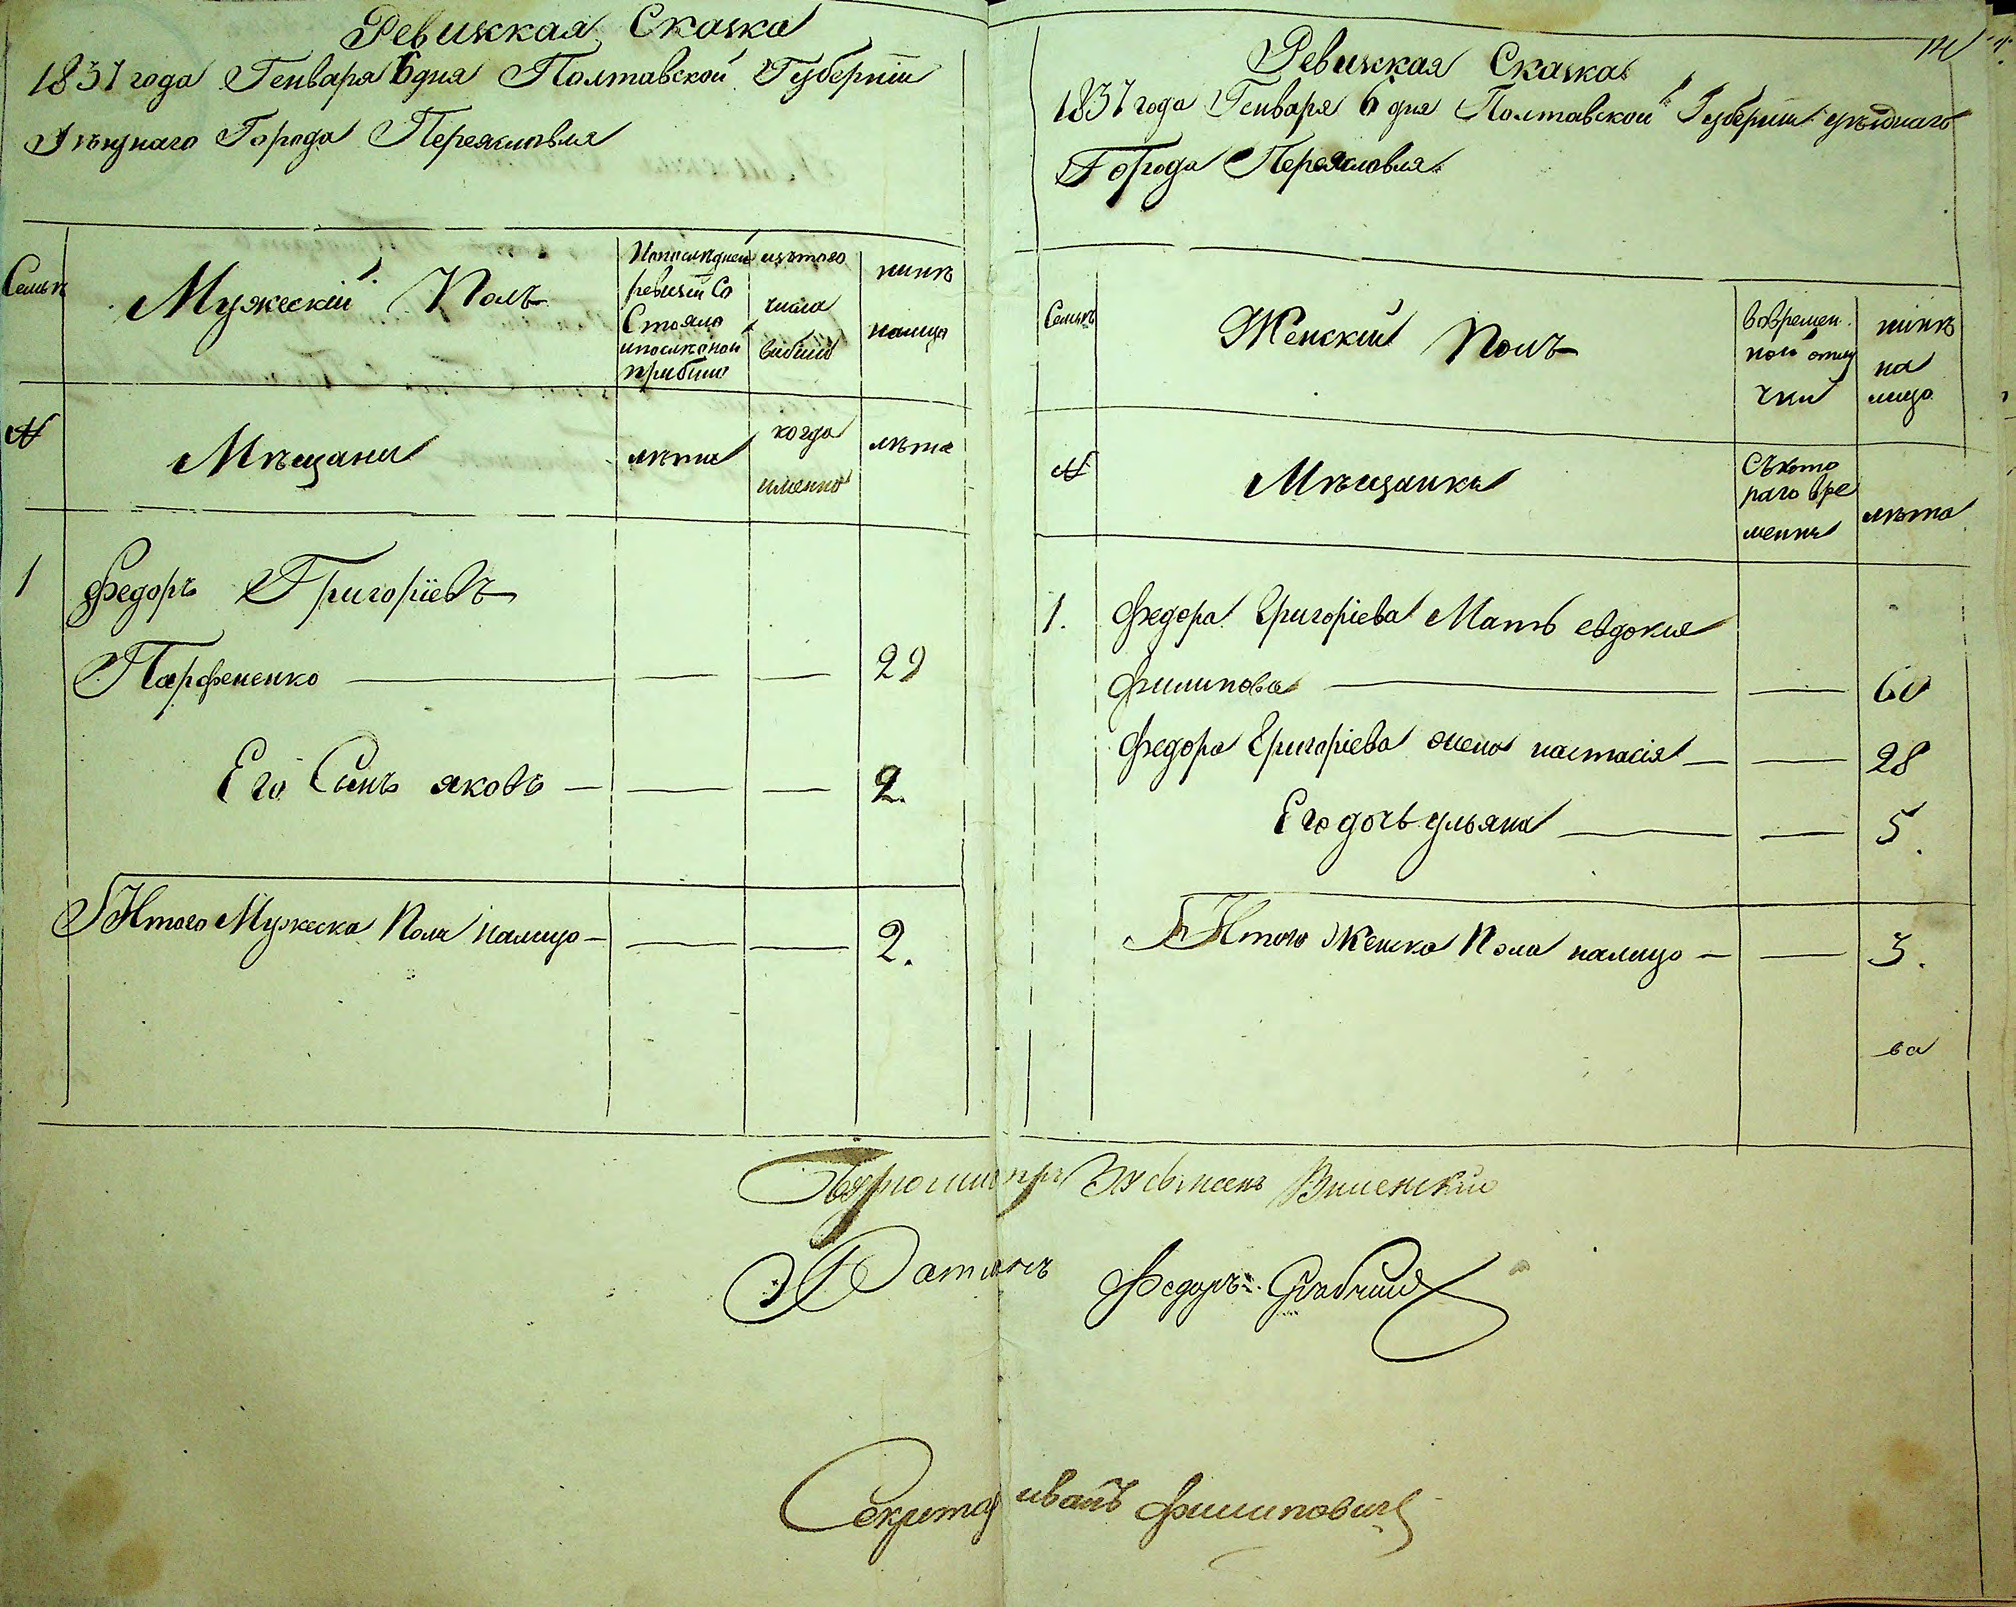 Ревизкая Сказка
1831 года Генваря 6 дня Полтавской Губерніи
Уѣзднаго Города Переяславля
Семья
Мужескій Полъ
Ипоследней
ревизіи Со
Стояло
ипослѣ оной
прибыло
изътого
числа
выбыло
нынѣ
налицо
№
Мѣщани
лѣта
когда
именно
лѣта
1 Федоръ Григоріевъ
Парфененко — — — 29
Его Сынъ яковъ — — — 2.
Итого Мужеска Пола налицо — — — 2.
14
Ревизкая Сказка
1831 года Генваря 6 дня Полтавской Губерніи уѣзднаго
Города Переяславля
Семья
Женский Полъ
вовремен
ной отлу
чки
нынѣ
на
лицо
№
Мѣщанки
Съкото
раго вре
мени
лѣта
1. Федора Григоріева Мать евдокия
Филипова — — 60
Федора Григоріева жена настасія — — 28
Его дочь ульяна — — 5.
Итого Женска Пола налицо — — 3.
ва
Бургомистръ
Ратманъ Федоръ
Секретарь иванъ Филиповичъ